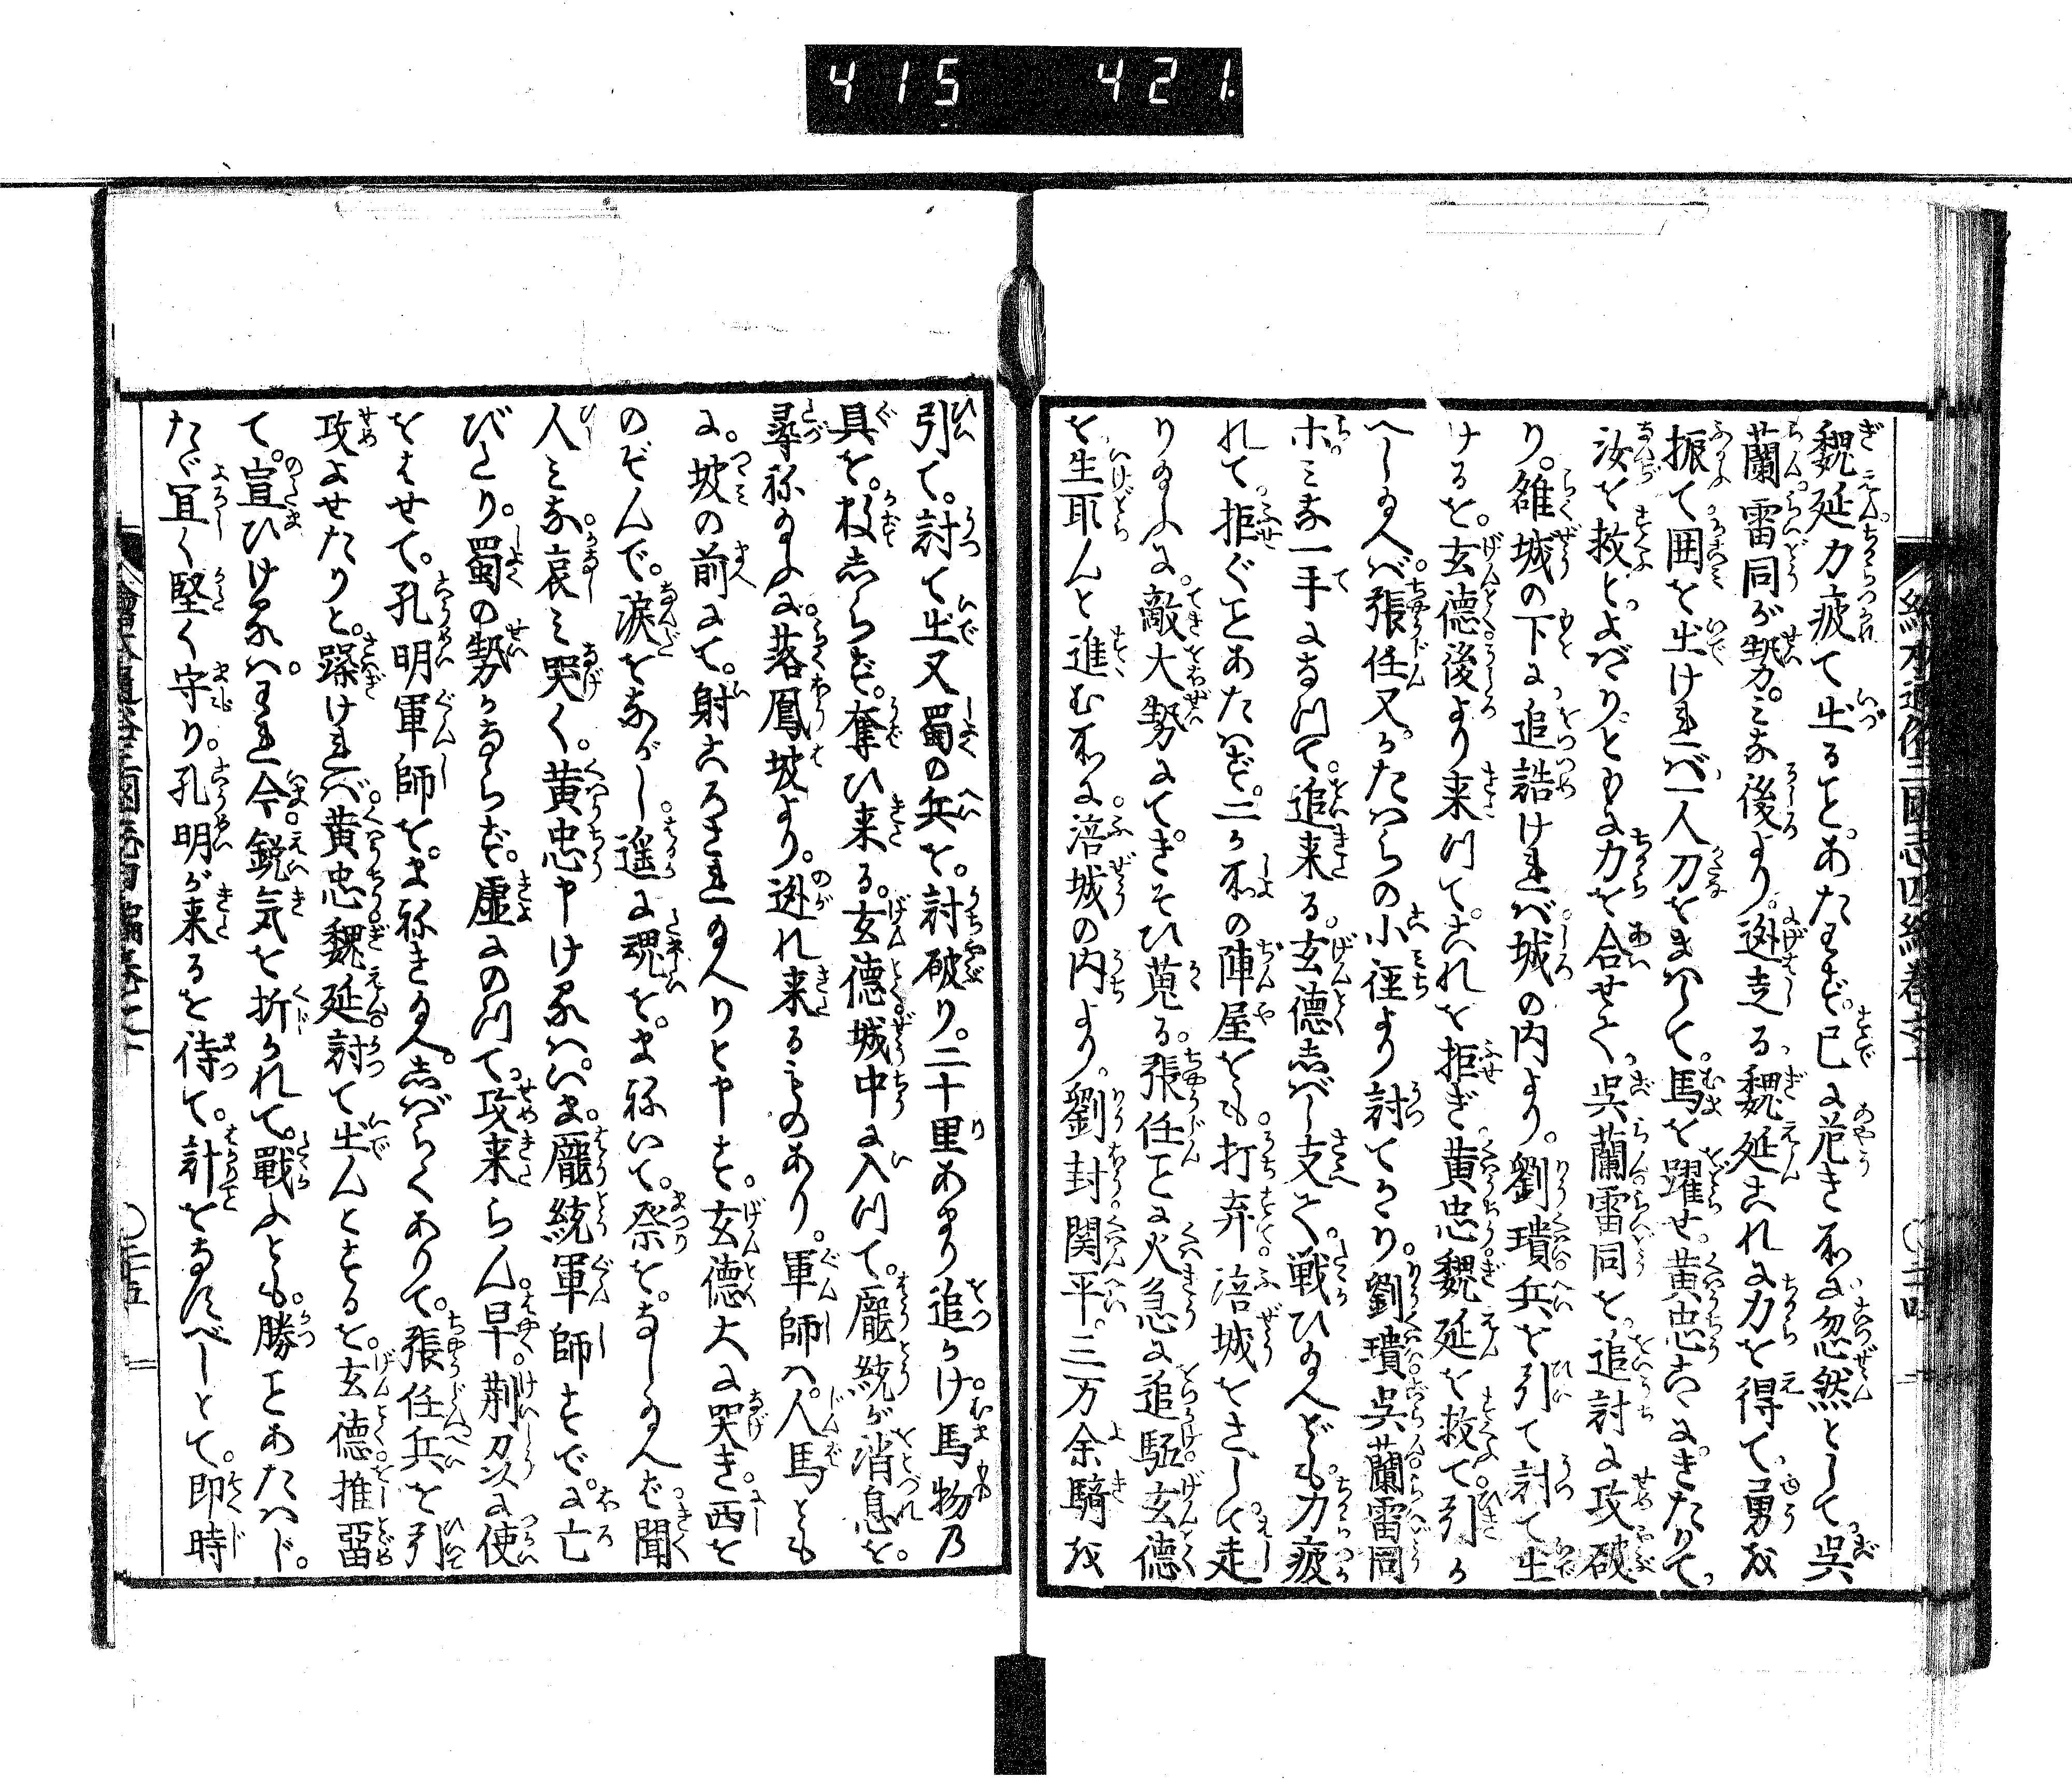 415 421
魏延力疲て出ることあたはず。已に危き所に忽然として呉
蘭雷同が勢。みな後より。迯走る魏延これに力を得て勇を
振て囲を出ければ一人刀をまはして。馬を躍せ黄忠こゝにきたりて
汝を救とよばりともに力を合せて呉蘭雷同を追討に攻破
り。雒城の下に追詰ければ城の内より。劉璝兵を引て討て出
けるを。玄徳後より来つてこれを拒ぎ黄忠魏延を救て引か
へし給へば張任又かたはらの小径より討てかゝり。劉璝呉蘭雷同
ホみな一手になつて。追来る。玄徳しばし支て。戦ひ給へども力疲
れて拒ぐことあたはず。二ヶ所の陣屋をも。打弃涪城をさして走
り給ふに。敵大勢にて。きそひ蒐る。張任ことに火急に追駈玄徳
を生取んと進む所に涪城の内より。劉封関平。三万余騎を
引て。討て出又蜀の兵を。討破り。二十里あまり追かけ馬物乃
具を。数しらず。奪ひ来る。玄徳城中に入つて。龐統が消息を。
尋ね給ふに。落鳳坡より。迯れ来るものあり。軍師ハ。人馬とも
に。坡の前にて。射ころされ給へりと申す。玄徳大に哭き。西を
のぞんで。涙をながし遥に魂をまねいて。祭をなし給へば聞
人みな哀み哭く。黄忠申けるハ。いま龐統軍師すでに亡
びたり。蜀の勢かならず。虚にのつて攻来らん。早く荊州に使
をはせて。孔明軍師を。まねき給へ。しばらくありて。張任兵を引
攻よせたりと。躁ければ黄忠魏延討て出んとするを。玄徳推畱
て。宣ひけるハ。われ今鋭気を折かれて。戰ふとも。勝ことあたハじ。
たゞ宜く堅く守り。孔明が来るを待て。計をなすべしとて。即時